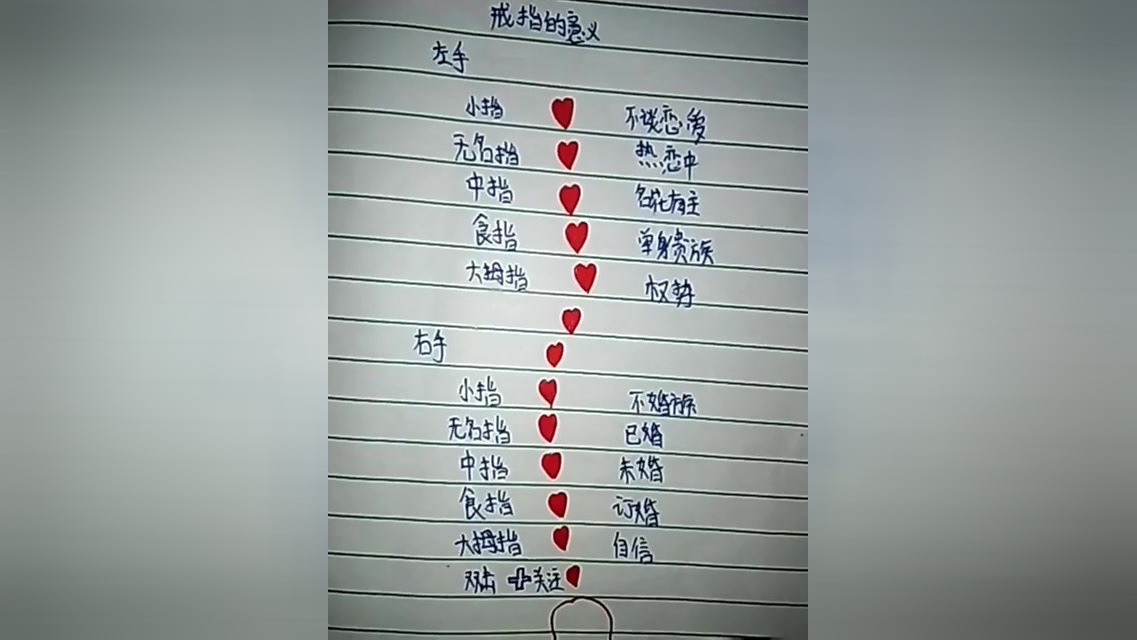 戒指的意义
左手
小指 不谈恋爱
无名指 热恋中
中指 名花有主
食指 单身贵族
大拇指 权势
右手
小指 不婚族
无名指 已婚
中指 未婚
食指 订婚
大拇指 自信
双击 + 关注